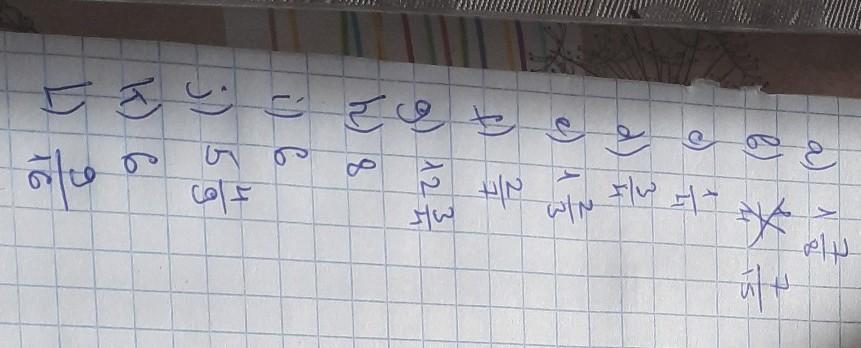 a) 1 7/8
b) 7/15
c) 1/4
d) 3/4
e) 1 2/3
f) 2/7
g) 12 3/4
h) 8
i) 6
j) 5 4/9
k) 6
L) 9/16